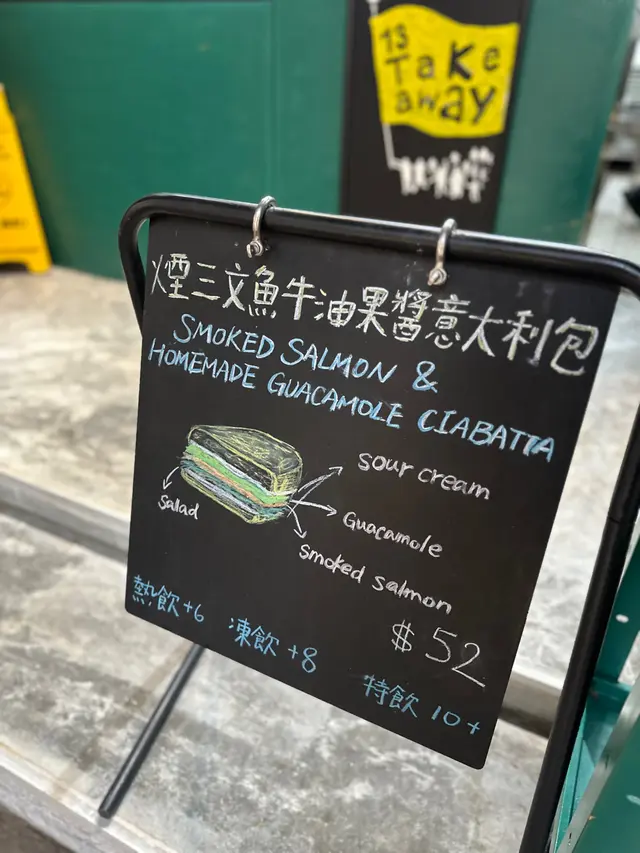 13
Take
away
煙三文魚牛油果醬意大利包
SMOKED SALMON &
HOMEMADE GUACAMOLE CIABATTA
sour cream
Salad
Guacamole
smoked salmon
$52
熱飲+6
凍飲+8
特飲 10+